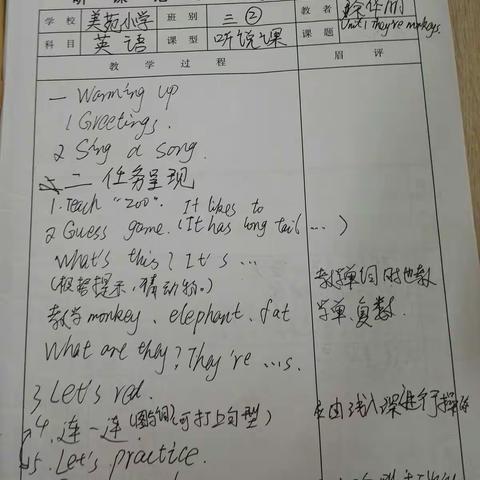 学校 美苑小学 班别 三② 教者
科目 英语 课型 听说课 课题 Unit 1 They're monkeys.
教学过程 眉评
一 Warming up
1 Greetings.
2 Sing a song.
二 任务呈现
1. Teach "zoo". It likes to
2 Guess game. (It has long tail ... )
What's this? It's ...
(根据提示,猜动物。)
教学单词时也教
教学 monkey、elephant、fat
学单、复数.
What are they? They're ...s.
3 Let's red.
4. 连一连 (可打上句型)
由浅入深进行了操练
5. Let's practice.